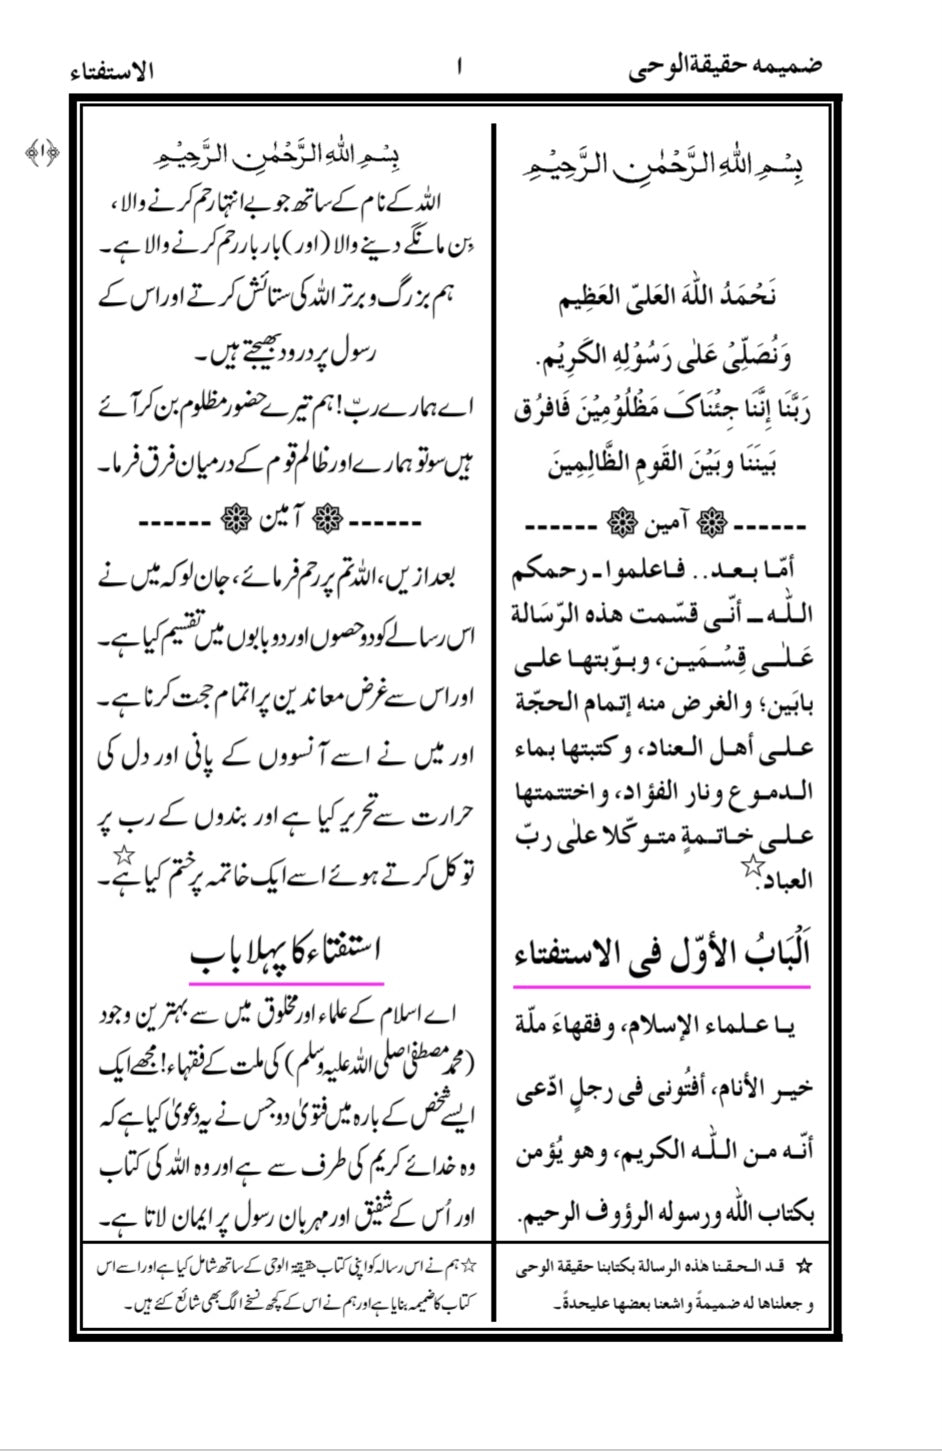 ضمیمہ حقیقۃالوحی
۱
الاستفتاء
بِسْمِ اللّٰہِ الرَّحْمٰنِ الرَّحِیْمِ
نَحْمَدُ اللّٰهَ العَلیّ العَظِیم
وَنُصَلِّیْ عَلٰی رَسُوْلِهِ الکَرِیْم.
رَبَّنَا إِنَّنَا جِئْنَاکَ مَظْلُوْمِیْنَ فَافرُق
بَینَنَا وبَیْنَ القَومِ الظَّالِمِینَ
------ آمین ------
أمّا بعد.. فاعلموا۔ رحمکم
اللّٰہ ــ أنّی قسّمت هذه الرّسَالة
عَلٰی قِسْمَین، وبوّبتها علی
بابَین؛ والغرض منه إتمام الحجّة
علی أهل العناد، وکتبتها بماء
الدموع ونار الفؤاد، واختتمتها
علی خاتمةٍ متوکّلا علٰی ربّ
العباد.☆
اَلْبَابُ الأوّل فی الاستفتاء
یا علماء الإسلام، وفقهاءَ ملّة
خیر الأنام، أفتُونی فی رجلٍ ادّعی
أنّه من اللّٰه الکریم، وهو یُؤمن
بکتاب اللّٰه ورسوله الرؤوف الرحیم.
☆ قد الحقنا هذه الرسالة بکتابنا حقیقة الوحی
و جعلناها له ضمیمةً و اشعنا بعضها علیحدةً۔
﴿۱﴾
بِسْمِ اللّٰہِ الرَّحْمٰنِ الرَّحِیْمِ
اللہ کے نام کے ساتھ جو بے انتہا رحم کرنے والا،
بِن مانگے دینے والا (اور) بار بار رحم کرنے والا ہے۔
ہم بزرگ و برتر اللہ کی ستائش کرتے اور اس کے
رسول پر درود بھیجتے ہیں۔
اے ہمارے ربّ! ہم تیرے حضور مظلوم بن کر آئے
ہیں سو تو ہمارے اور ظالم قوم کے درمیان فرق فرما۔
------ آمین ------
بعد ازیں، اللہ تم پر رحم فرمائے، جان لو کہ میں نے
اس رسالے کو دو حصوں اور دو بابوں میں تقسیم کیا ہے۔
اور اس سے غرض معاندین پر اتمام حجت کرنا ہے۔
اور میں نے اسے آنسووں کے پانی اور دل کی
حرارت سے تحریر کیا ہے اور بندوں کے رب پر
توکل کرتے ہوئے اسے ایک خاتمہ پر ختم کیا ہے۔☆
استفتاء کا پہلا باب
اے اسلام کے علماء اور مخلوق میں سے بہترین وجود
(محمد مصطفیٰ صلی اللہ علیہ وسلم) کی ملت کے فقہاء! مجھے ایک
ایسے شخص کے بارہ میں فتویٰ دو جس نے یہ دعویٰ کیا ہے کہ
وہ خدائے کریم کی طرف سے ہے اور وہ اللہ کی کتاب
اور اُس کے شفیق اور مہربان رسول پر ایمان لاتا ہے۔
☆ ہم نے اس رسالہ کو اپنی کتاب حقیقۃ الوحی کے ساتھ شامل کیا ہے اور اسے اس
کتاب کا ضمیمہ بنایا ہے اور ہم نے اس کے کچھ نسخے الگ بھی شائع کئے ہیں۔